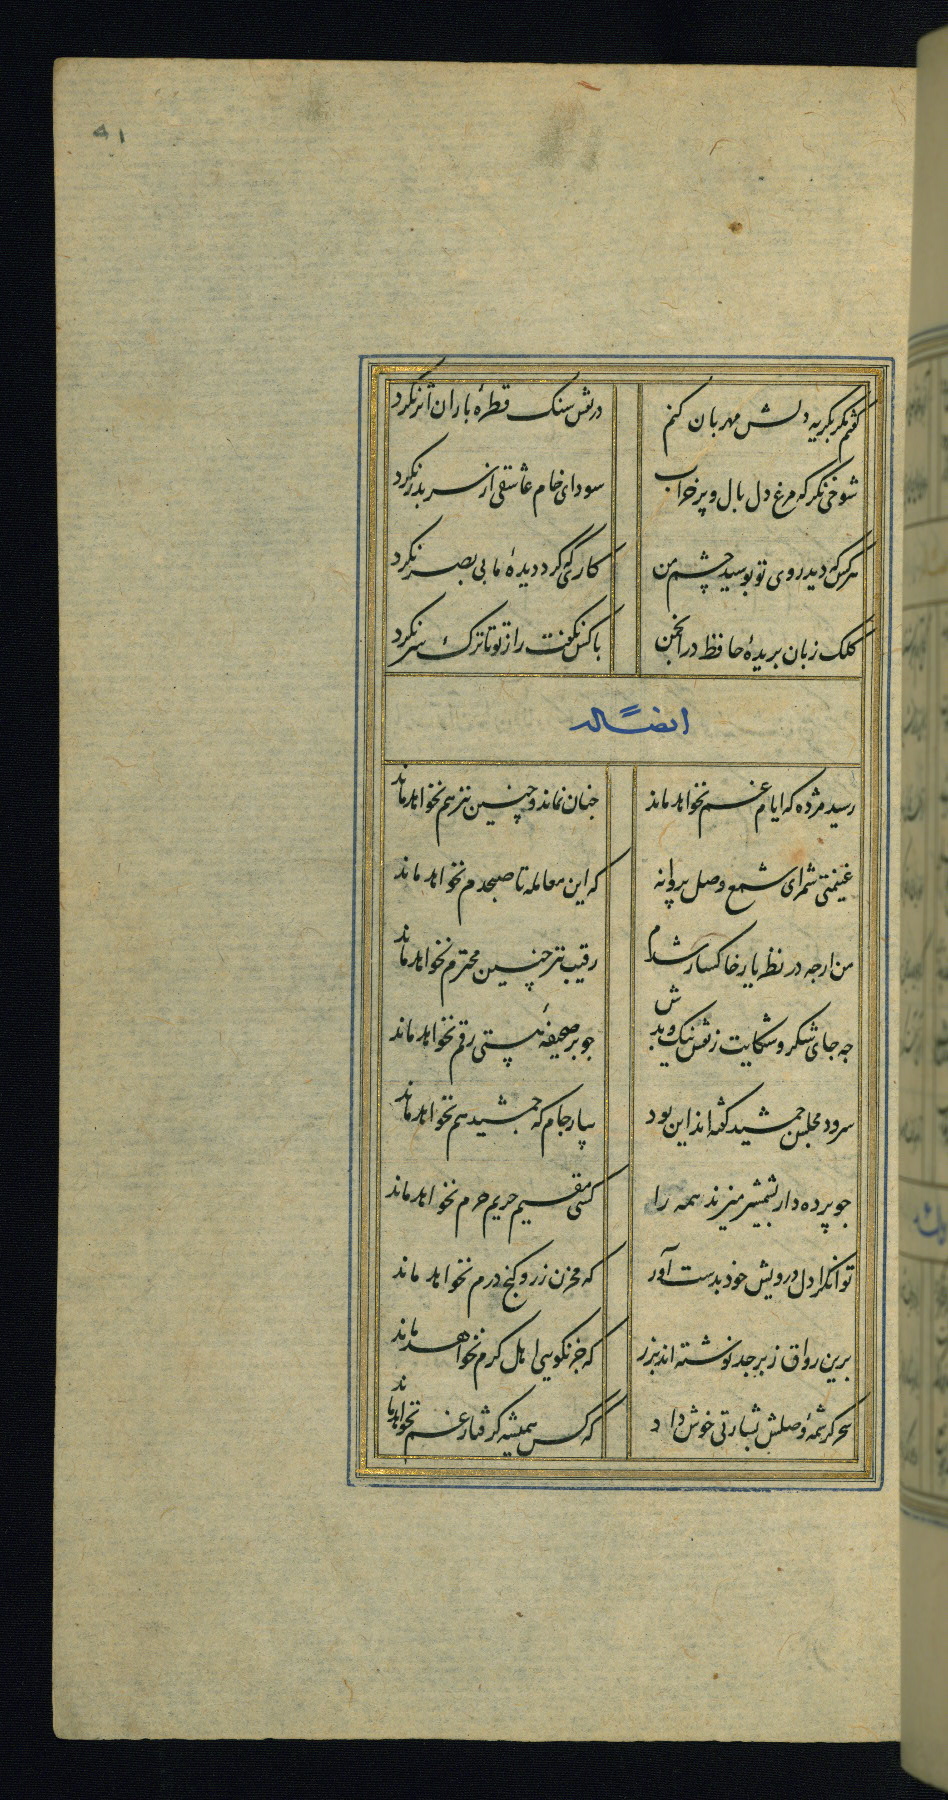 ۵۱
گفتم مگر بگریه دلش مهربان کنم در نقش سنک قطرهٔ باران اثر نکرد
شوخی نکر که مرغ دل بال و پر خراب سودای خام عاشقی از سر بدر نکرد
هرکس که دید روی تو بوسید چشم من کاری که کرد دیدهٔ ما بی بصر نکرد
کلک زبان بریدهٔ حافظ در انجمن با کس نکفت راز تو تا ترک سر نکرد
ایضاً له
رسید مژده که ایام غم نخواهد ماند چنان نماند و چنین نیز هم نخواهد ماند
غنیمتی شمر ای شمع وصل پروانه که این معامله تا صبحدم نخواهد ماند
من ارچه در نظر یار خاکسار شدم رقیب نیز چنین محترم نخواهد ماند
چه جای شکر و شکایت ز نقش نیک و بدش چو بر صحیفهٔ هستی رقم نخواهد ماند
سرود مجلس جمشید کفته اند این بود بیار جام که جمشید هم نخواهد ماند
چو پرده دار بشمشیر میزند همه را کسی مقیم حریم حرم نخواهد ماند
توانکرا دل درویش خود بدست آور که مخزن زر و کنج درم نخواهد ماند
برین رواق زبرجد نوشته اند بزر که جز نکویی اهل کرم نخواهد ماند
سحر کرشمهٔ وصلش بشارتی خوش داد که کس همیشه کرفتار غم نخواهد ماند